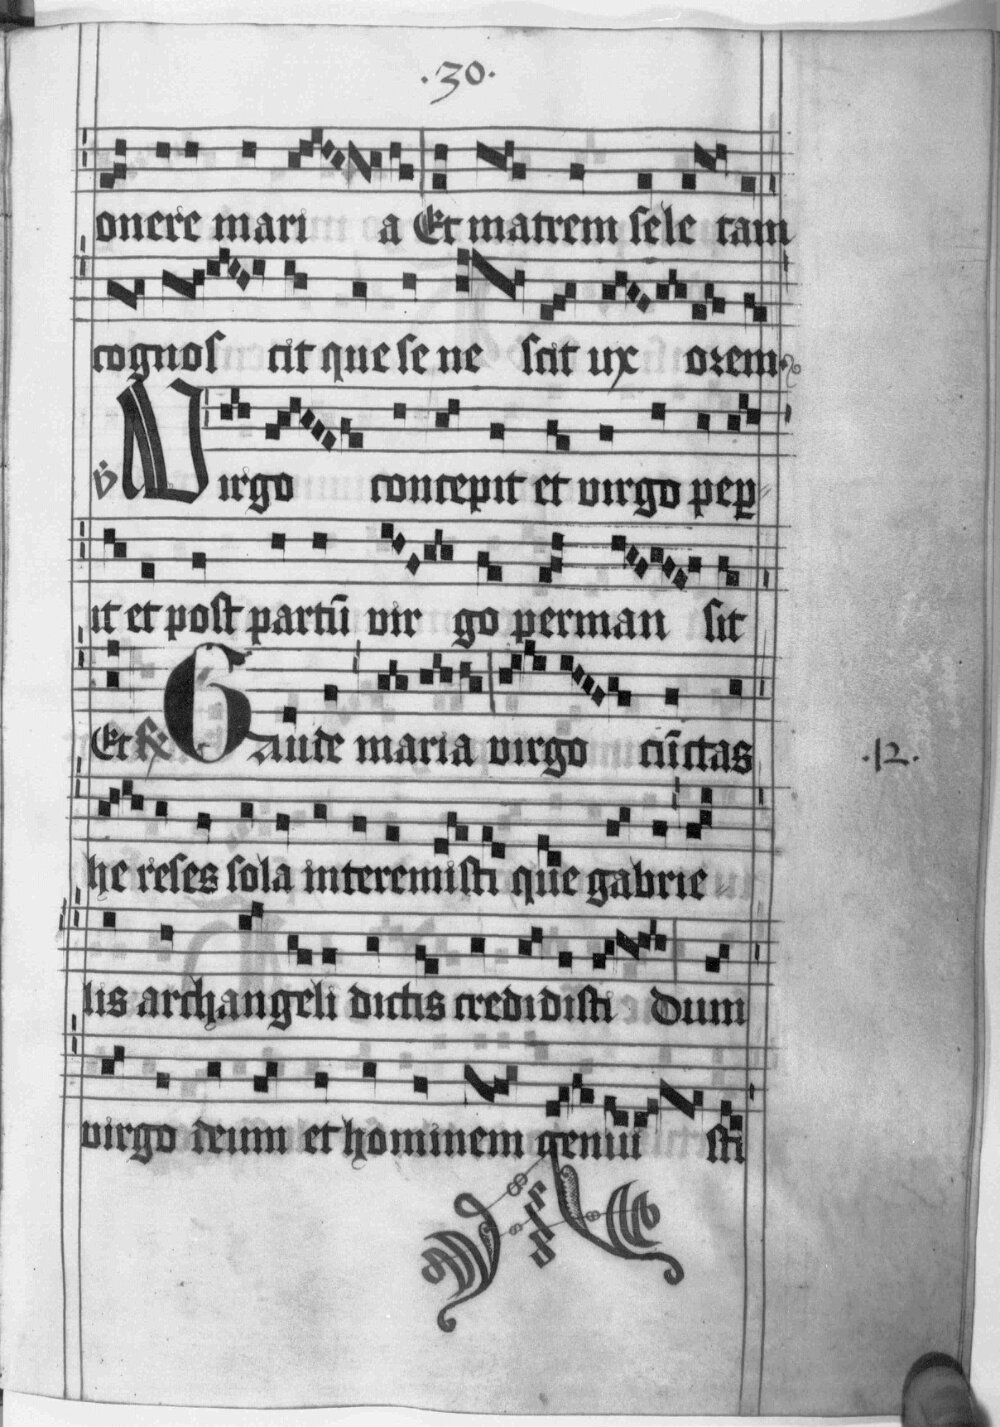 .30.
onere mari a Et matrem sese tam
cognos cit que se ne scit ux orem
v̇ Virgo concepit et virgo pep
it et post partū vir go perman sit
Et ℟ Gaude maria virgo cūctas
.12.
he reses sola interemisti que gabrie
lis archangeli dictis credidisti dum
virgo deum et hominem genui sti